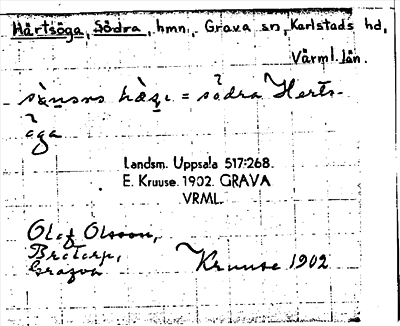 Hårtsöga, Södra, hmn, Grava sn, Karlstads hd,
Värml. län.
hǝgi = södra Herts-
öga
Landsm. Uppsala 517:268.
E. Kruuse. 1902. GRAVA
VRML.
Olof Olsson,
Grava
Kruuse 1902